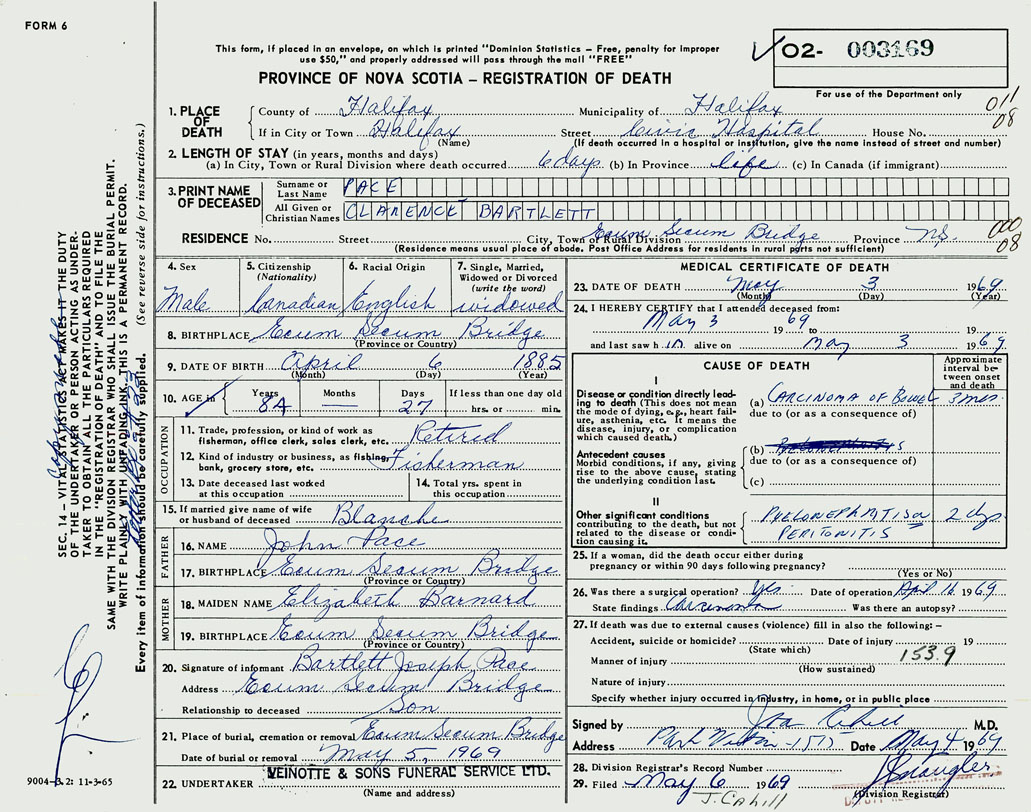 FORM 6
This form, if placed in an envelope, on which is printed "Dominion Statistics – Free, penalty for improper
use $50," and properly addressed will pass through the mail "FREE"
PROVINCE OF NOVA SCOTIA – REGISTRATION OF DEATH
02- 003169
For use of the Department only
011
08
1. PLACE OF DEATH
County of Halifax Municipality of Halifax
If in City or Town Halifax Street Civic Hospital House No.
(Name) (If death occurred in a hospital or institution, give the name instead of street and number)
2. LENGTH OF STAY (in years, months and days)
(a) In City, Town or Rural Division where death occurred 6 days (b) In Province life (c) In Canada (if immigrant)
3. PRINT NAME OF DECEASED
Surname or Last Name PACE
All Given or Christian Names CLARENCE BARTLETT
RESIDENCE No. Street City, Town or Rural Division Ecum Secum Bridge Province N.S.
(Residence means usual place of abode. Post Office Address for residents in rural parts not sufficient)
000
08
4. Sex Male
5. Citizenship (Nationality) Canadian
6. Racial Origin English
7. Single, Married, Widowed or Divorced (write the word) widowed
8. BIRTHPLACE Ecum Secum Bridge
(Province or Country)
9. DATE OF BIRTH April 6 1885
(Month) (Day) (Year)
10. AGE in Years 84 Months — Days 27 If less than one day old hrs. or min.
OCCUPATION
11. Trade, profession, or kind of work as fisherman, office clerk, sales clerk, etc. Retired
12. Kind of industry or business, as fishing, bank, grocery store, etc. Fisherman
13. Date deceased last worked at this occupation
14. Total yrs. spent in this occupation
15. If married give name of wife or husband of deceased Blanche
FATHER
16. NAME John Pace
17. BIRTHPLACE Ecum Secum Bridge
(Province or Country)
MOTHER
18. MAIDEN NAME Elizabeth Barnard
19. BIRTHPLACE Ecum Secum Bridge
(Province or Country)
20. Signature of informant Bartlett Joseph Pace
Address Ecum Secum Bridge
Relationship to deceased Son
21. Place of burial, cremation or removal Ecum Secum Bridge
Date of burial or removal May 5, 1969
22. UNDERTAKER VEINOTTE & SONS FUNERAL SERVICE LTD.
(Name and address)
MEDICAL CERTIFICATE OF DEATH
23. DATE OF DEATH May 3 1969
(Month) (Day) (Year)
24. I HEREBY CERTIFY that I attended deceased from:
May 3 1969 to 19
and last saw h im alive on May 3 1969
CAUSE OF DEATH
Approximate interval between onset and death
I
Disease or condition directly leading to death (This does not mean the mode of dying, e.g., heart failure, asthenia, etc. It means the disease, injury, or complication which caused death.)
(a) CARCINOMA OF BOWEL 3 mos.
due to (or as a consequence of)
Antecedent causes
Morbid conditions, if any, giving rise to the above cause, stating the underlying condition last.
(b)
due to (or as a consequence of)
(c)
II
Other significant conditions contributing to the death, but not related to the disease or condition causing it.
PYELONEPHRITIS 2 dys.
PERITONITIS
25. If a woman, did the death occur either during pregnancy or within 90 days following pregnancy?
(Yes or No)
26. Was there a surgical operation? Yes Date of operation April 16 1969
State findings Carcinoma Was there an autopsy?
27. If death was due to external causes (violence) fill in also the following: –
Accident, suicide or homicide? Date of injury 19
(State which) 153.9
Manner of injury
(How sustained)
Nature of injury
Specify whether injury occurred in industry, in home, or in public place
Signed by Cahill M.D.
Address Date May 4 1969
28. Division Registrar's Record Number
29. Filed May 6 1969
(Division Registrar)
J. Cahill
SEC. 14 – VITAL STATISTICS ACT MAKES IT THE DUTY
OF THE UNDERTAKER OR PERSON ACTING AS UNDER-
TAKER TO OBTAIN ALL THE PARTICULARS REQUIRED
IN THE "REGISTRATION OF DEATH" AND TO FILE THE
SAME WITH THE DIVISION REGISTRAR WHO SHALL ISSUE THE BURIAL PERMIT.
WRITE PLAINLY WITH UNFADING INK. THIS IS A PERMANENT RECORD.
Every item of information should be carefully supplied. (See reverse side for instructions.)
9004-3.2: 11-3-65